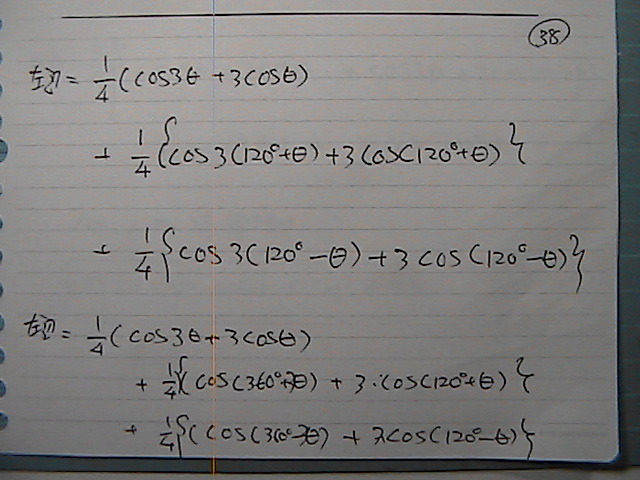 38
左辺 = 1/4 (cos3θ + 3cosθ)
+ 1/4 {cos3(120°+θ) + 3cos(120°+θ)}
+ 1/4 {cos3(120°-θ) + 3cos(120°-θ)}
左辺 = 1/4 (cos3θ + 3cosθ)
+ 1/4 {(cos(360°+3θ) + 3·cos(120°+θ)}
+ 1/4 {(cos(360°-3θ) + 3cos(120°-θ)}